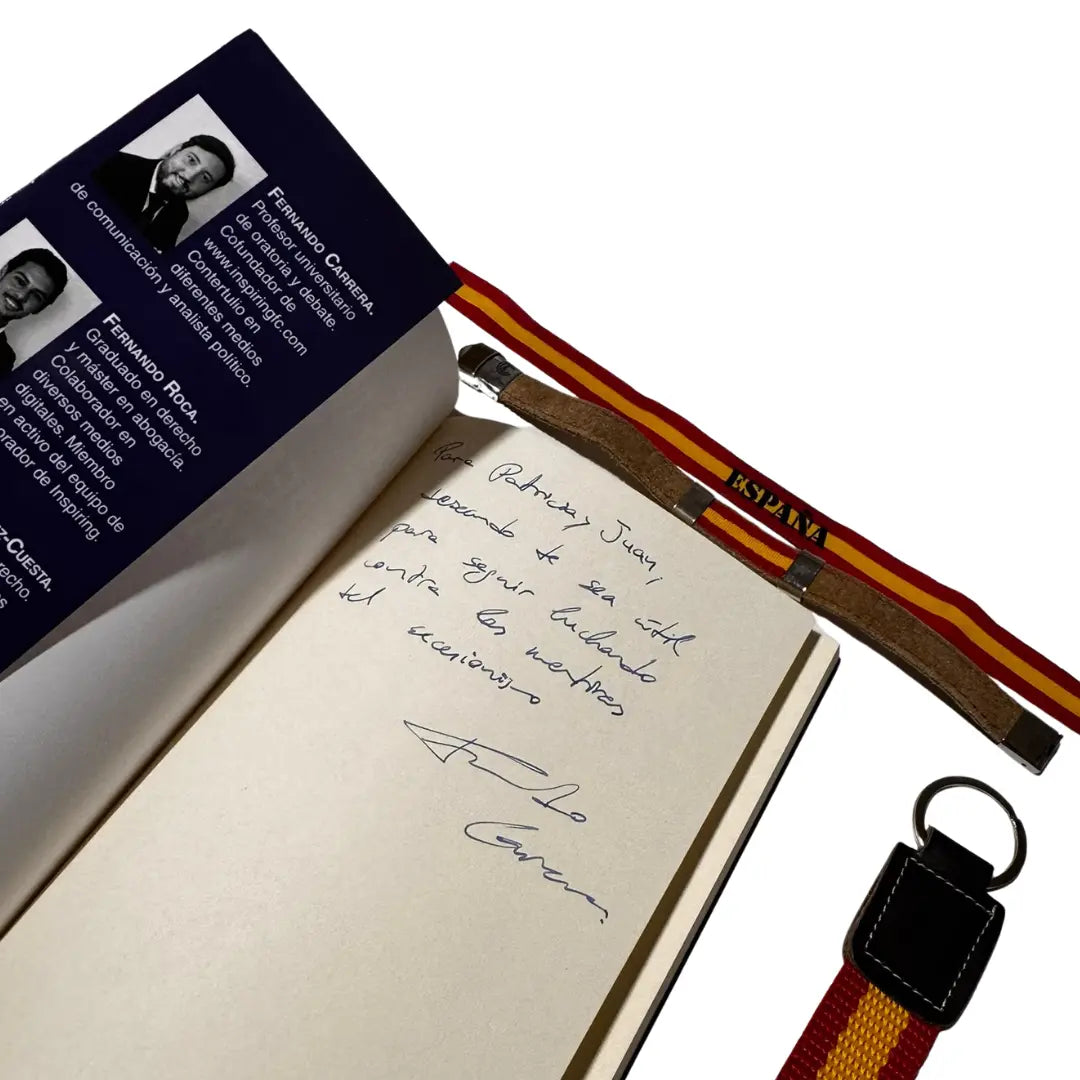 FERNANDO CARRERA.
Profesor universitario
de oratoria y debate.
Cofundador de
www.inspiringlc.com
Contertulio en
diferentes medios
de comunicación y analista político.
FERNANDO ROCA.
Graduado en derecho
y máster en abogacía.
Colaborador en
diversos medios
digitales. Miembro
en activo del equipo de
orador de Inspiring.
Z-CUESTA.
recho.
os
Para Patricia y Juan,
deseando te sea útil
para seguir luchando
contra las mentiras
del secesionismo
Fernando
Carrera.
ESPAÑA